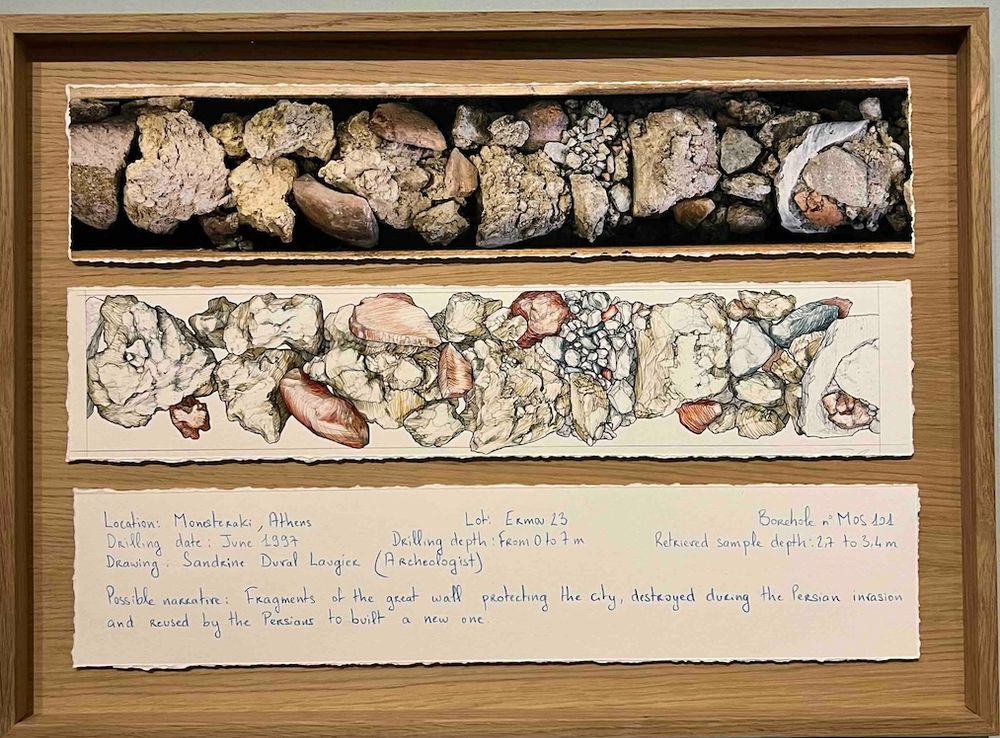 Location: Monesteraki, Athens Lot: Ermou 23 Borehole n° MOS 101
Drilling date: June 1997 Drilling depth: From 0 to 7 m Retrieved sample depth: 2,7 to 3,4 m
Drawing: Sandrine Duval Laugier (Archeologist)
Possible narrative: Fragments of the great wall protecting the city, destroyed during the Persian invasion
and reused by the Persians to built a new one.